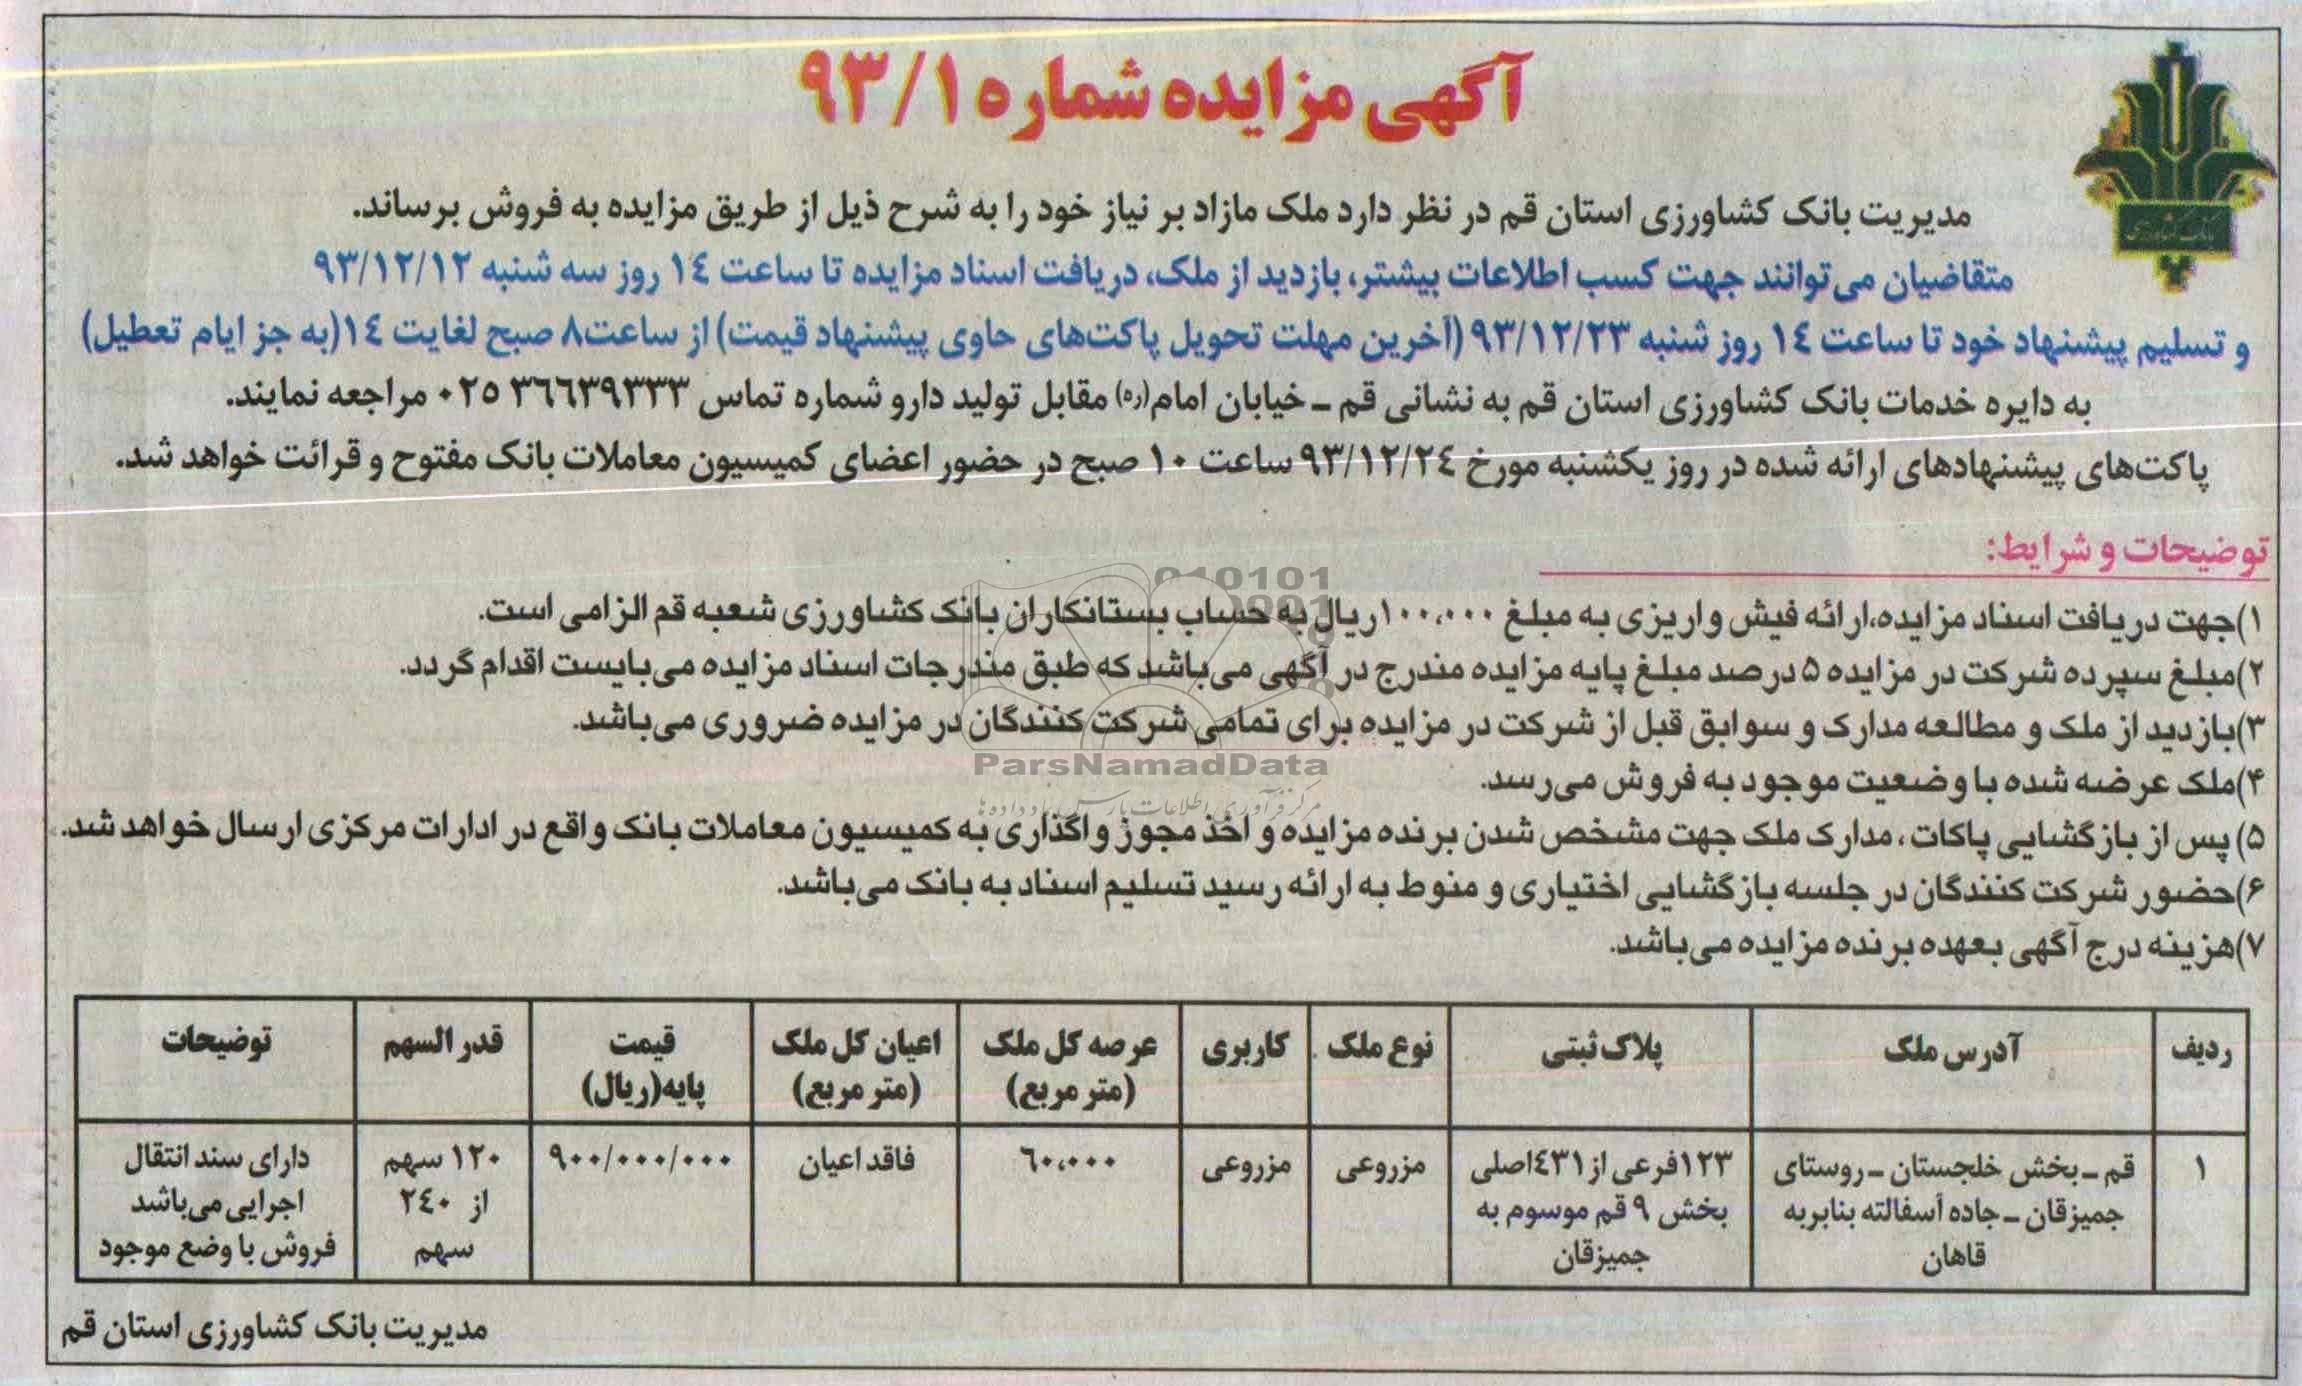 آگهی مزایده شماره ۹۳/۱
بانک کشاورزی
مدیریت بانک کشاورزی استان قم در نظر دارد ملک مازاد بر نیاز خود را به شرح ذیل از طریق مزایده به فروش برساند.
متقاضیان می‌توانند جهت کسب اطلاعات بیشتر، بازدید از ملک، دریافت اسناد مزایده تا ساعت ۱۴ روز سه شنبه ۹۳/۱۲/۱۲
و تسلیم پیشنهاد خود تا ساعت ۱۴ روز شنبه ۹۳/۱۲/۲۳ (آخرین مهلت تحویل پاکت‌های حاوی پیشنهاد قیمت) از ساعت۸ صبح لغایت ۱۴(به جز ایام تعطیل)
به دایره خدمات بانک کشاورزی استان قم به نشانی قم ـ خیابان امام(ره) مقابل تولید دارو شماره تماس ۳۶۶۳۹۳۳۳ ۰۲۵ مراجعه نمایند.
پاکت‌های پیشنهادهای ارائه شده در روز یکشنبه مورخ ۹۳/۱۲/۲۴ ساعت ۱۰ صبح در حضور اعضای کمیسیون معاملات بانک مفتوح و قرائت خواهد شد.
توضیحات و شرایط:
۱)جهت دریافت اسناد مزایده،ارائه فیش واریزی به مبلغ ۱۰۰،۰۰۰ریال به حساب بستانکاران بانک کشاورزی شعبه قم الزامی است.
۲)مبلغ سپرده شرکت در مزایده ۵ درصد مبلغ پایه مزایده مندرج در آگهی می‌باشد که طبق مندرجات اسناد مزایده می‌بایست اقدام گردد.
۳)بازدید از ملک و مطالعه مدارک و سوابق قبل از شرکت در مزایده برای تمامی شرکت کنندگان در مزایده ضروری می‌باشد.
۴)ملک عرضه شده با وضعیت موجود به فروش می‌رسد.
۵) پس از بازگشایی پاکات، مدارک ملک جهت مشخص شدن برنده مزایده و اخذ مجوز واگذاری به کمیسیون معاملات بانک واقع در ادارات مرکزی ارسال خواهد شد.
۶)حضور شرکت کنندگان در جلسه بازگشایی اختیاری و منوط به ارائه رسید تسلیم اسناد به بانک می‌باشد.
۷)هزینه درج آگهی بعهده برنده مزایده می‌باشد.
ParsNamadData
مرکز فرآوری اطلاعات پارس نماد داده ها
ردیف آدرس ملک پلاک ثبتی نوع ملک کاربری عرصه کل ملک اعیان کل ملک قیمت قدر السهم توضیحات
(متر مربع) (متر مربع) پایه(ریال)
۱ قم ـ بخش خلجستان ـ روستای ۱۲۳فرعی از ۴۳۱اصلی مزروعی مزروعی ۶۰،۰۰۰ فاقد اعیان ۹۰۰/۰۰۰/۰۰۰ ۱۲۰ سهم دارای سند انتقال
جمیزقان ـ جاده آسفالته بنابر به بخش ۹ قم موسوم به از ۲۴۰ اجرایی می‌باشد
قاهان جمیزقان سهم فروش با وضع موجود
مدیریت بانک کشاورزی استان قم